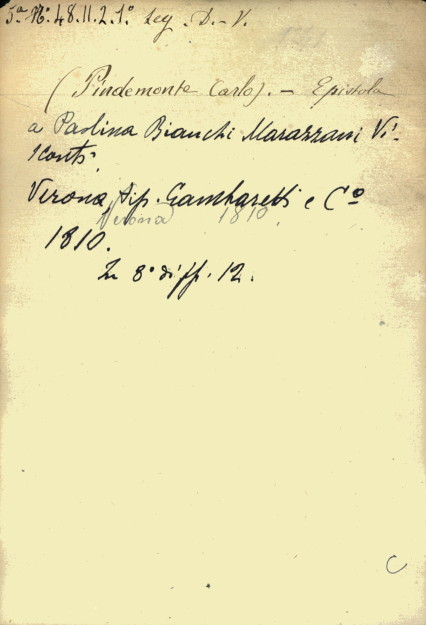 5ª Nº 48.11.2.1º Leg. D.-V.
(Pindemonte Carlo). - Epistola
a Paolina Bianchi Marazzani Vi-
sconti
Verona, tip. Gambaretti e Cº
Verona 1810
1810.
In 8º di ff. 12.
C